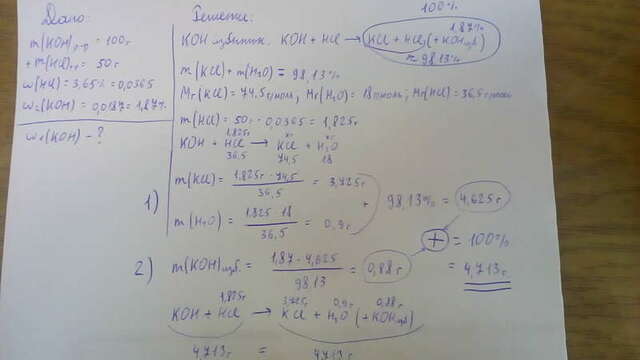 Дано:
m(KOH)р-р = 100г
+ m(HCl)р = 50г
w(HCl) = 3,65% = 0,0365
w₁(KOH) = 0,0187 = 1,87%
w₁(KOH) - ?
Решение:
100%
KOH + HCl → KCl + H₂O (+ KOH изб)
1.87%
98.13%
m(KCl) + m(H₂O) = 98.13%
Mr(KCl) = 74.5 г/моль; Mr(H₂O) = 18 г/моль; Mr(HCl) = 36.5 г/моль
m(HCl) = 50 · 0.0365 = 1.825г
1.825г x y
KOH + HCl → KCl + H₂O
36.5 74.5 18
1) m(KCl) = 1.825г · 74.5 / 36.5 = 3.725г
m(H₂O) = 1.825 · 18 / 36.5 = 0.9г
+ 98.13% = 4.625г
2) m(KOH) изб = 1.87 · 4.625 / 98.13 = 0.88г
+ = 100% = 4.713г
1.825г 3.725г 0.9г 0.88г
KOH + HCl → KCl + H₂O (+ KOH изб)
4.713г = 4.713г